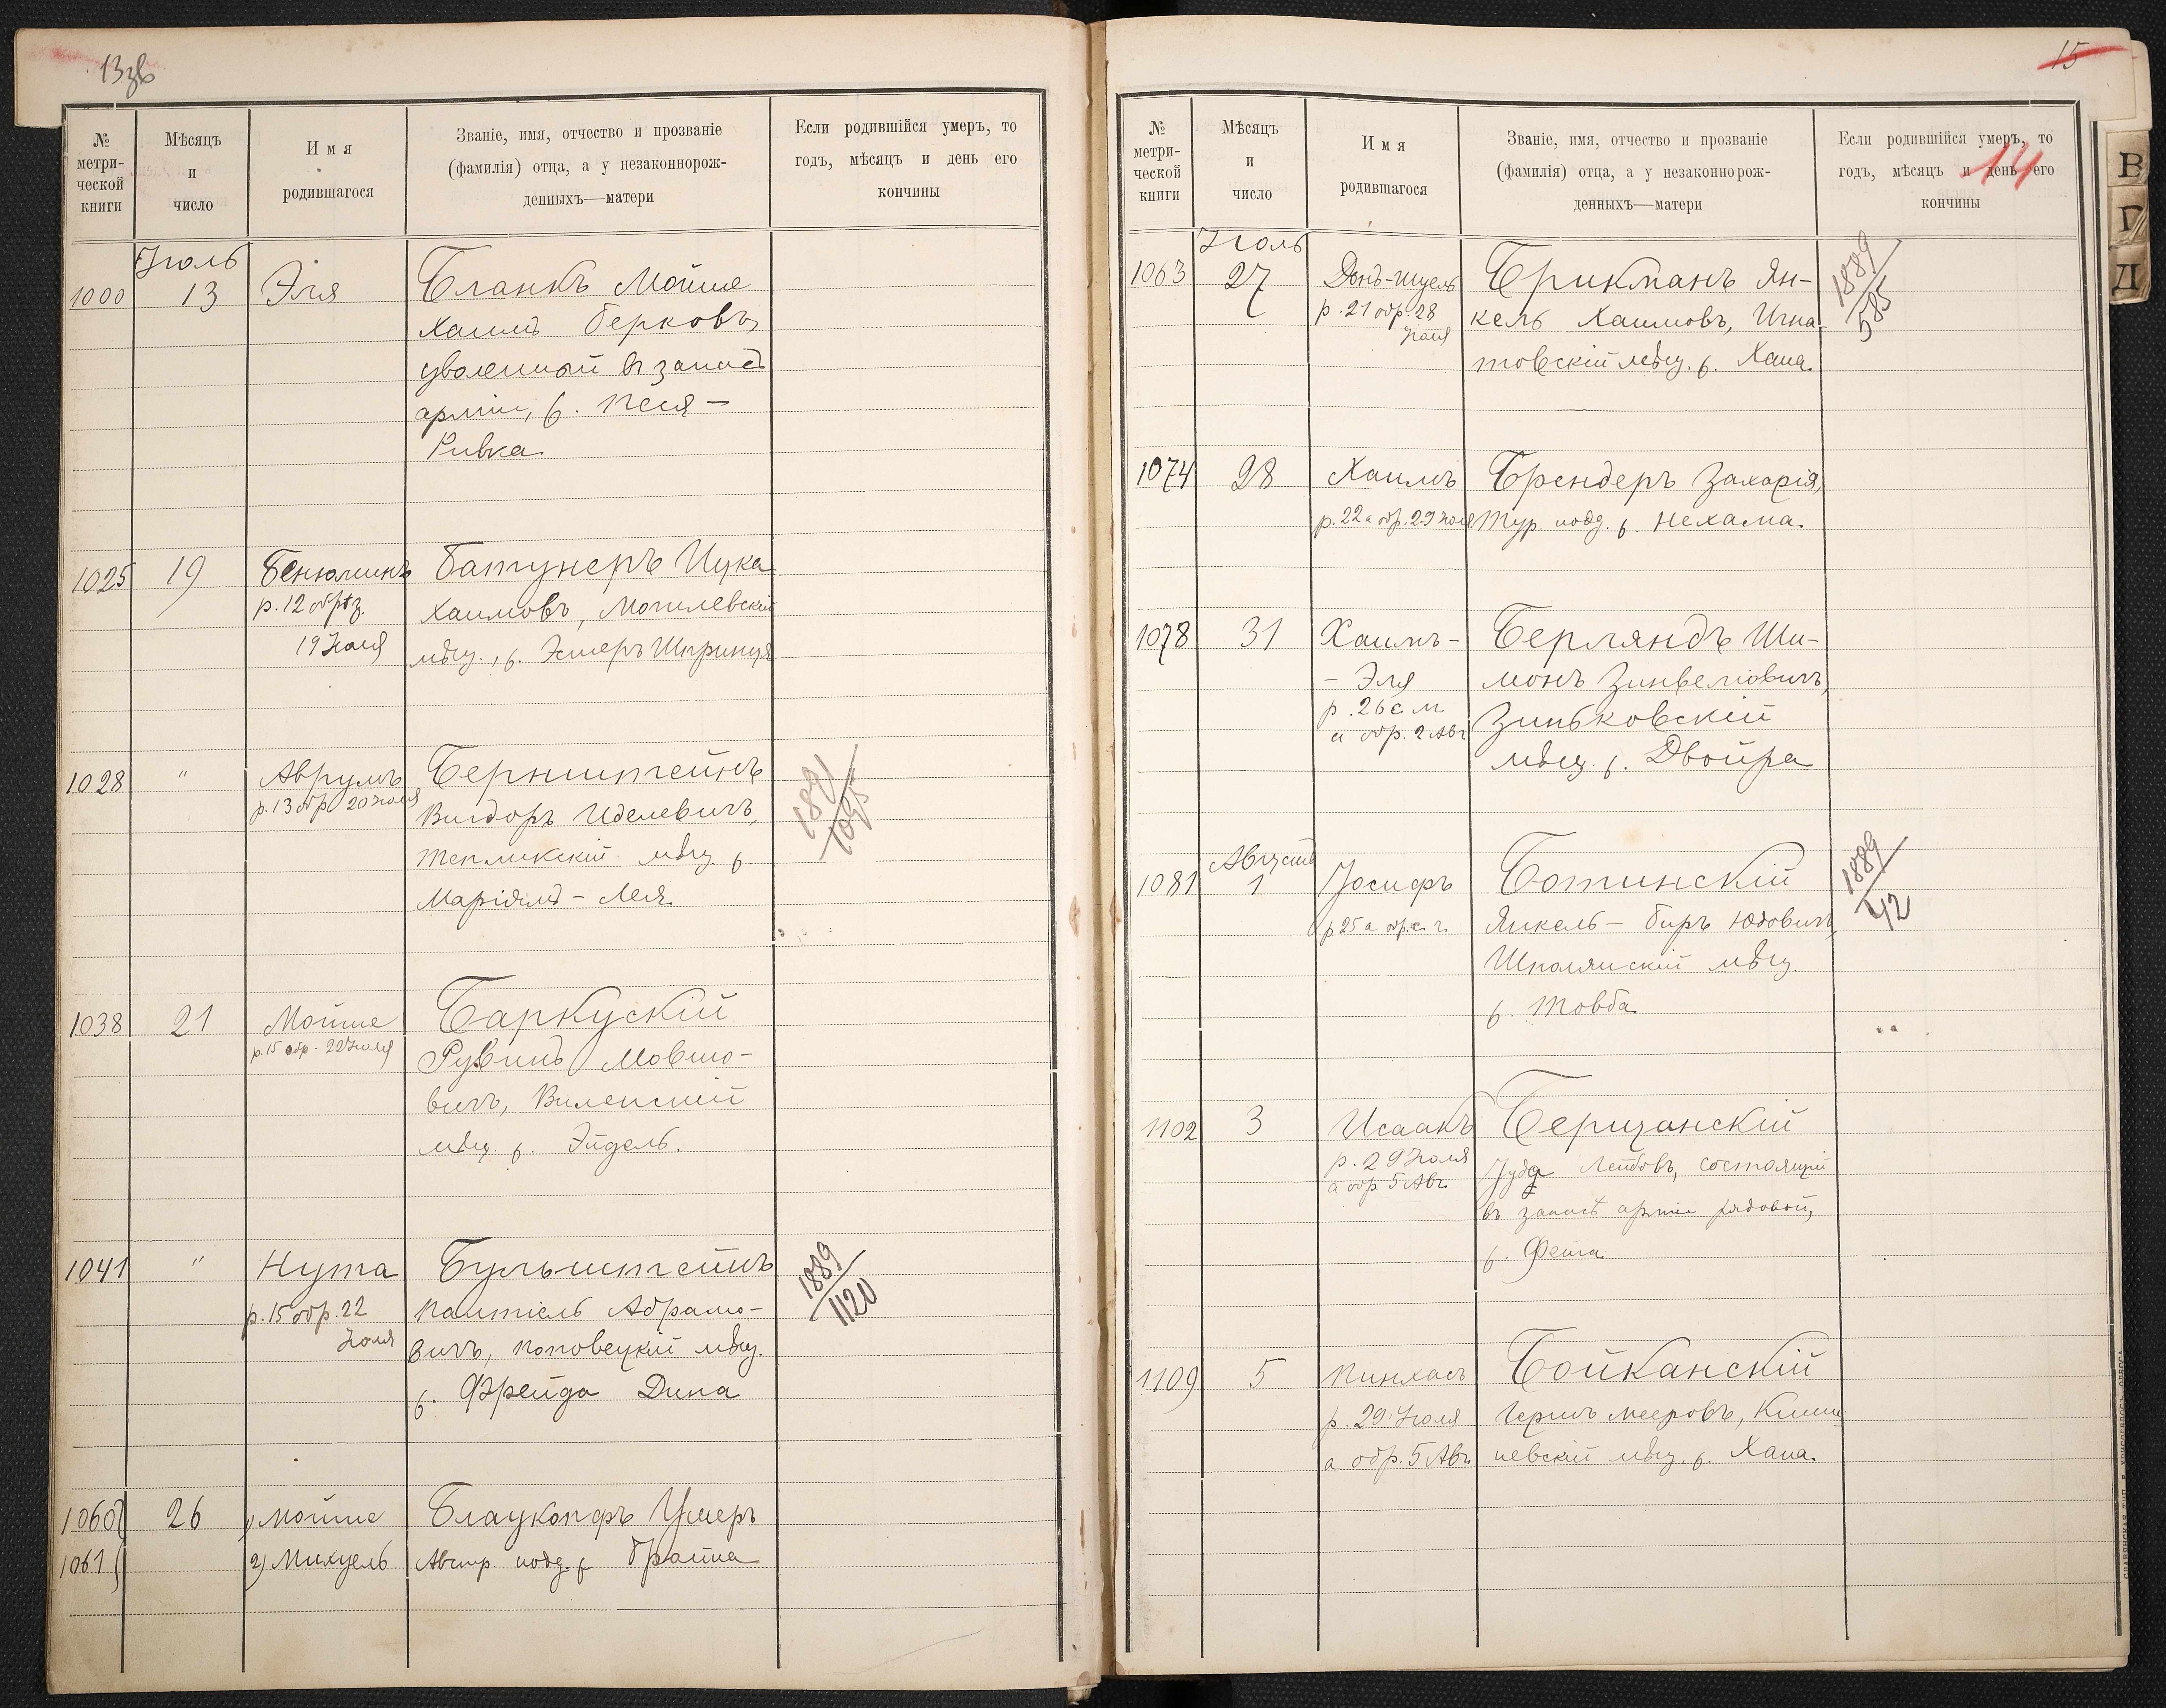 13 зв
№ метрической книги
Мѣсяцъ и число
Имя родившагося
Званіе, имя, отчество и прозваніе (фамилія) отца, а у незаконнорожденныхъ—матери
Если родившійся умеръ, то годъ, мѣсяцъ и день его кончины
Іюль
1000 13 Эля Бланкъ Мойше
Хаимъ Берковъ,
уволенный въ запасъ
арміи, ж. Песя-
Ривка
1025 19 Бенюминъ Батунеръ Ицка
р. 12 обрѣз. Хаимовъ, Могилевскій
19 Іюля мѣщ., ж. Эстеръ Шпринця
1028 " Аврумъ Бернштейнъ
р. 13 обр. 20 Іюля Вигдоръ Иделевичъ,
Тепликскій мѣщ. ж.
Маріямъ-Лея.
1891
1038 21 Мойше Баркускій
р. 15 обр. 22 Іюля Рувинъ Мовшо-
вичъ, Виленскій
мѣщ. ж. Эйдель.
1041 " Нута Бульштейнъ
р. 15 обр. 22 Палтіель Абрамо-
Іюля вичъ, Поповецкій мѣщ.
ж. Фрейда Дина
1889/1120
1060 26 1) Мойше Блаукопфъ Ушеръ
1061 2) Михуель Австр. подд. ж. Брайна
15
14
№ метрической книги
Мѣсяцъ и число
Имя родившагося
Званіе, имя, отчество и прозваніе (фамилія) отца, а у незаконнорожденныхъ—матери
Если родившійся умеръ, то годъ, мѣсяцъ и день его кончины
Іюль
1063 27 Брикманъ Ян-
р. 21 обр. 28 кель Хаимовъ, Игна-
Іюля товскій мѣщ. ж. Хана.
1889/585
1074 28 Хаимъ Брендеръ Захарія,
р. 22 а обр. 29 Іюля Тур. подд. ж. Нехама.
1078 31 Хаимъ- Берляндъ Ши-
- Эля монъ Зинвеліовичъ,
р. 26 с. м. Зиньковскій
а обр. 2 Авг. мѣщ. ж. Двойра
Августъ
1081 1 Іосифъ Ботинскій
р 25 а обр. Янкель- Беръ Юдовичъ,
Шполянскій мѣщ.
ж. Товба.
1889/42
1102 3 Исаакъ Бершанскій
р. 29 Іюля Іуда Лейбовъ, состоящій
а обр. 5 Авг. въ запасѣ арміи рядовой,
ж. Фейга
1109 5 Пинхасъ Бойканскій
р. 29 Іюля Гершъ Мееровъ, Киши-
а обр. 5 Авг. невскій мѣщ. ж. Хана.
В
Г
Д